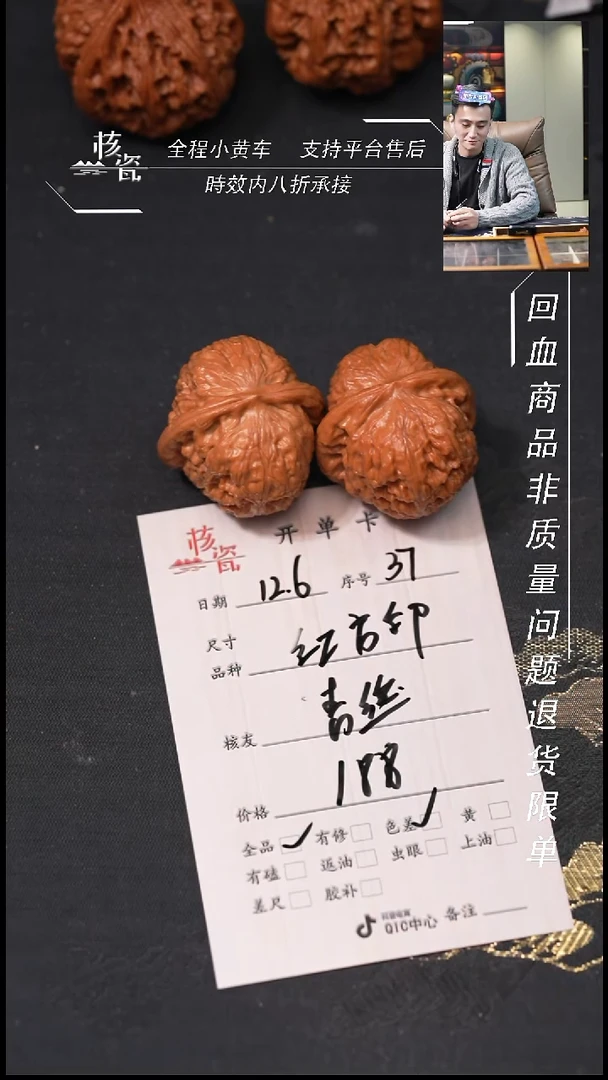 核瓷
全程小黄车 支持平台售后
時效内八折承接
回血商品非质量问题退货限单
核瓷
开单卡
日期 12.6 序号 37
尺寸
品种 红官印
核友 青丝
价格 188
全品 有修 色差 黄
有磕 返油 虫眼 上油
差尺 胶补
抖音电商
QIC中心 备注